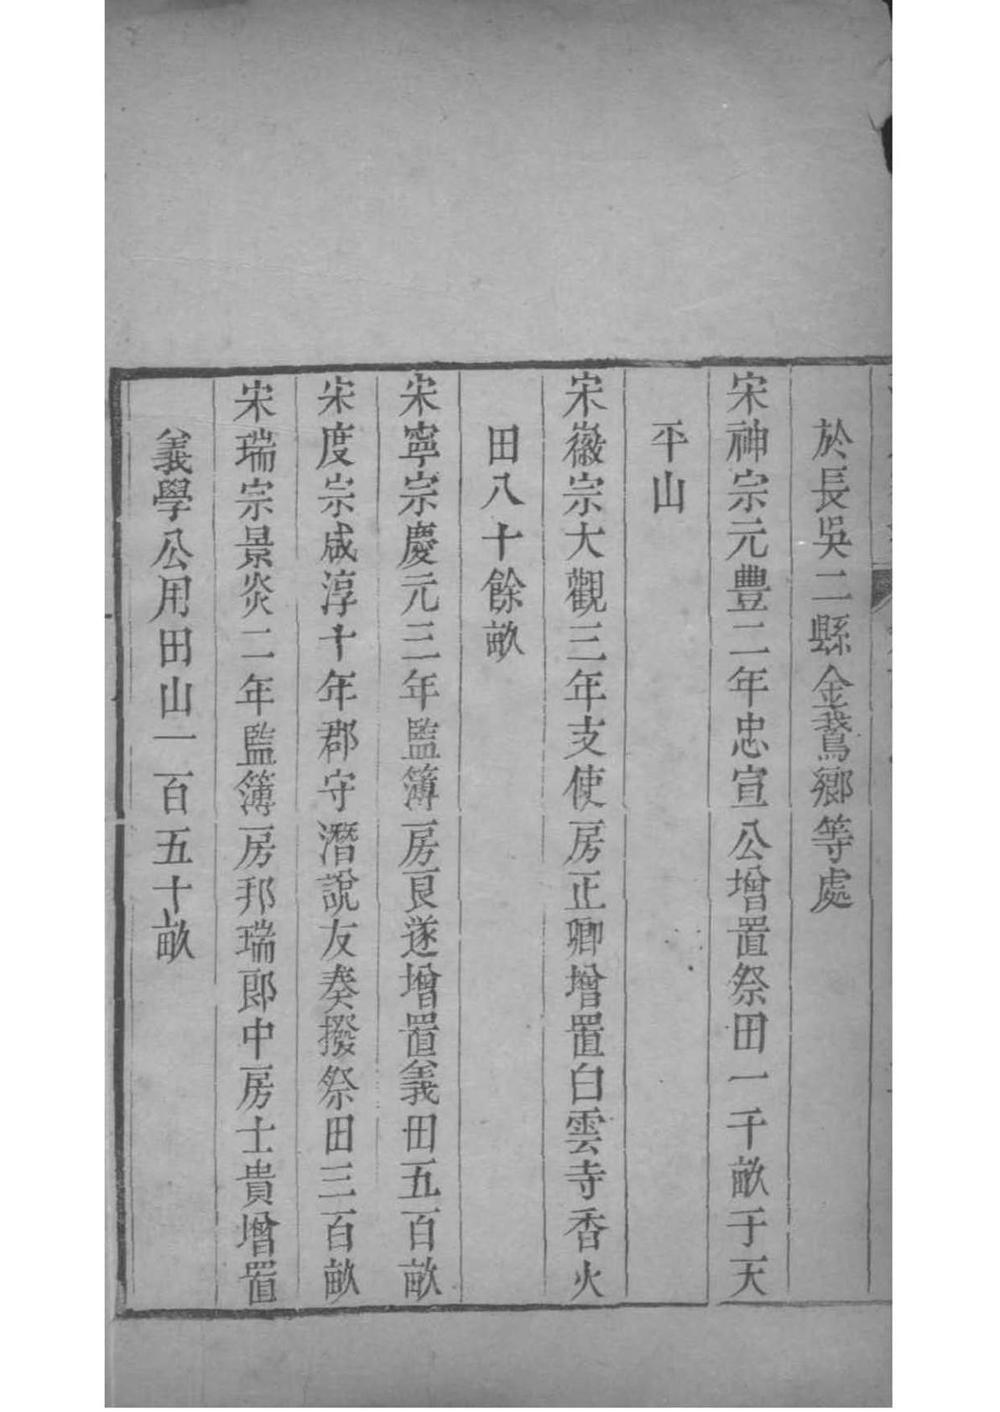 於長吳二縣金鵞鄉等處
宋神宗元豐二年忠宣公增置祭田一千畝于天
平山
宋徽宗大觀三年支使房正卿增置白雲寺香火
田八十餘畝
宋寧宗慶元三年監簿房良遂增置義田五百畝
宋度宗咸淳十年郡守潛說友奏撥祭田三百畝
宋瑞宗景炎二年監簿房邦瑞郎中房士貴增置
義學公用田山一百五十畝